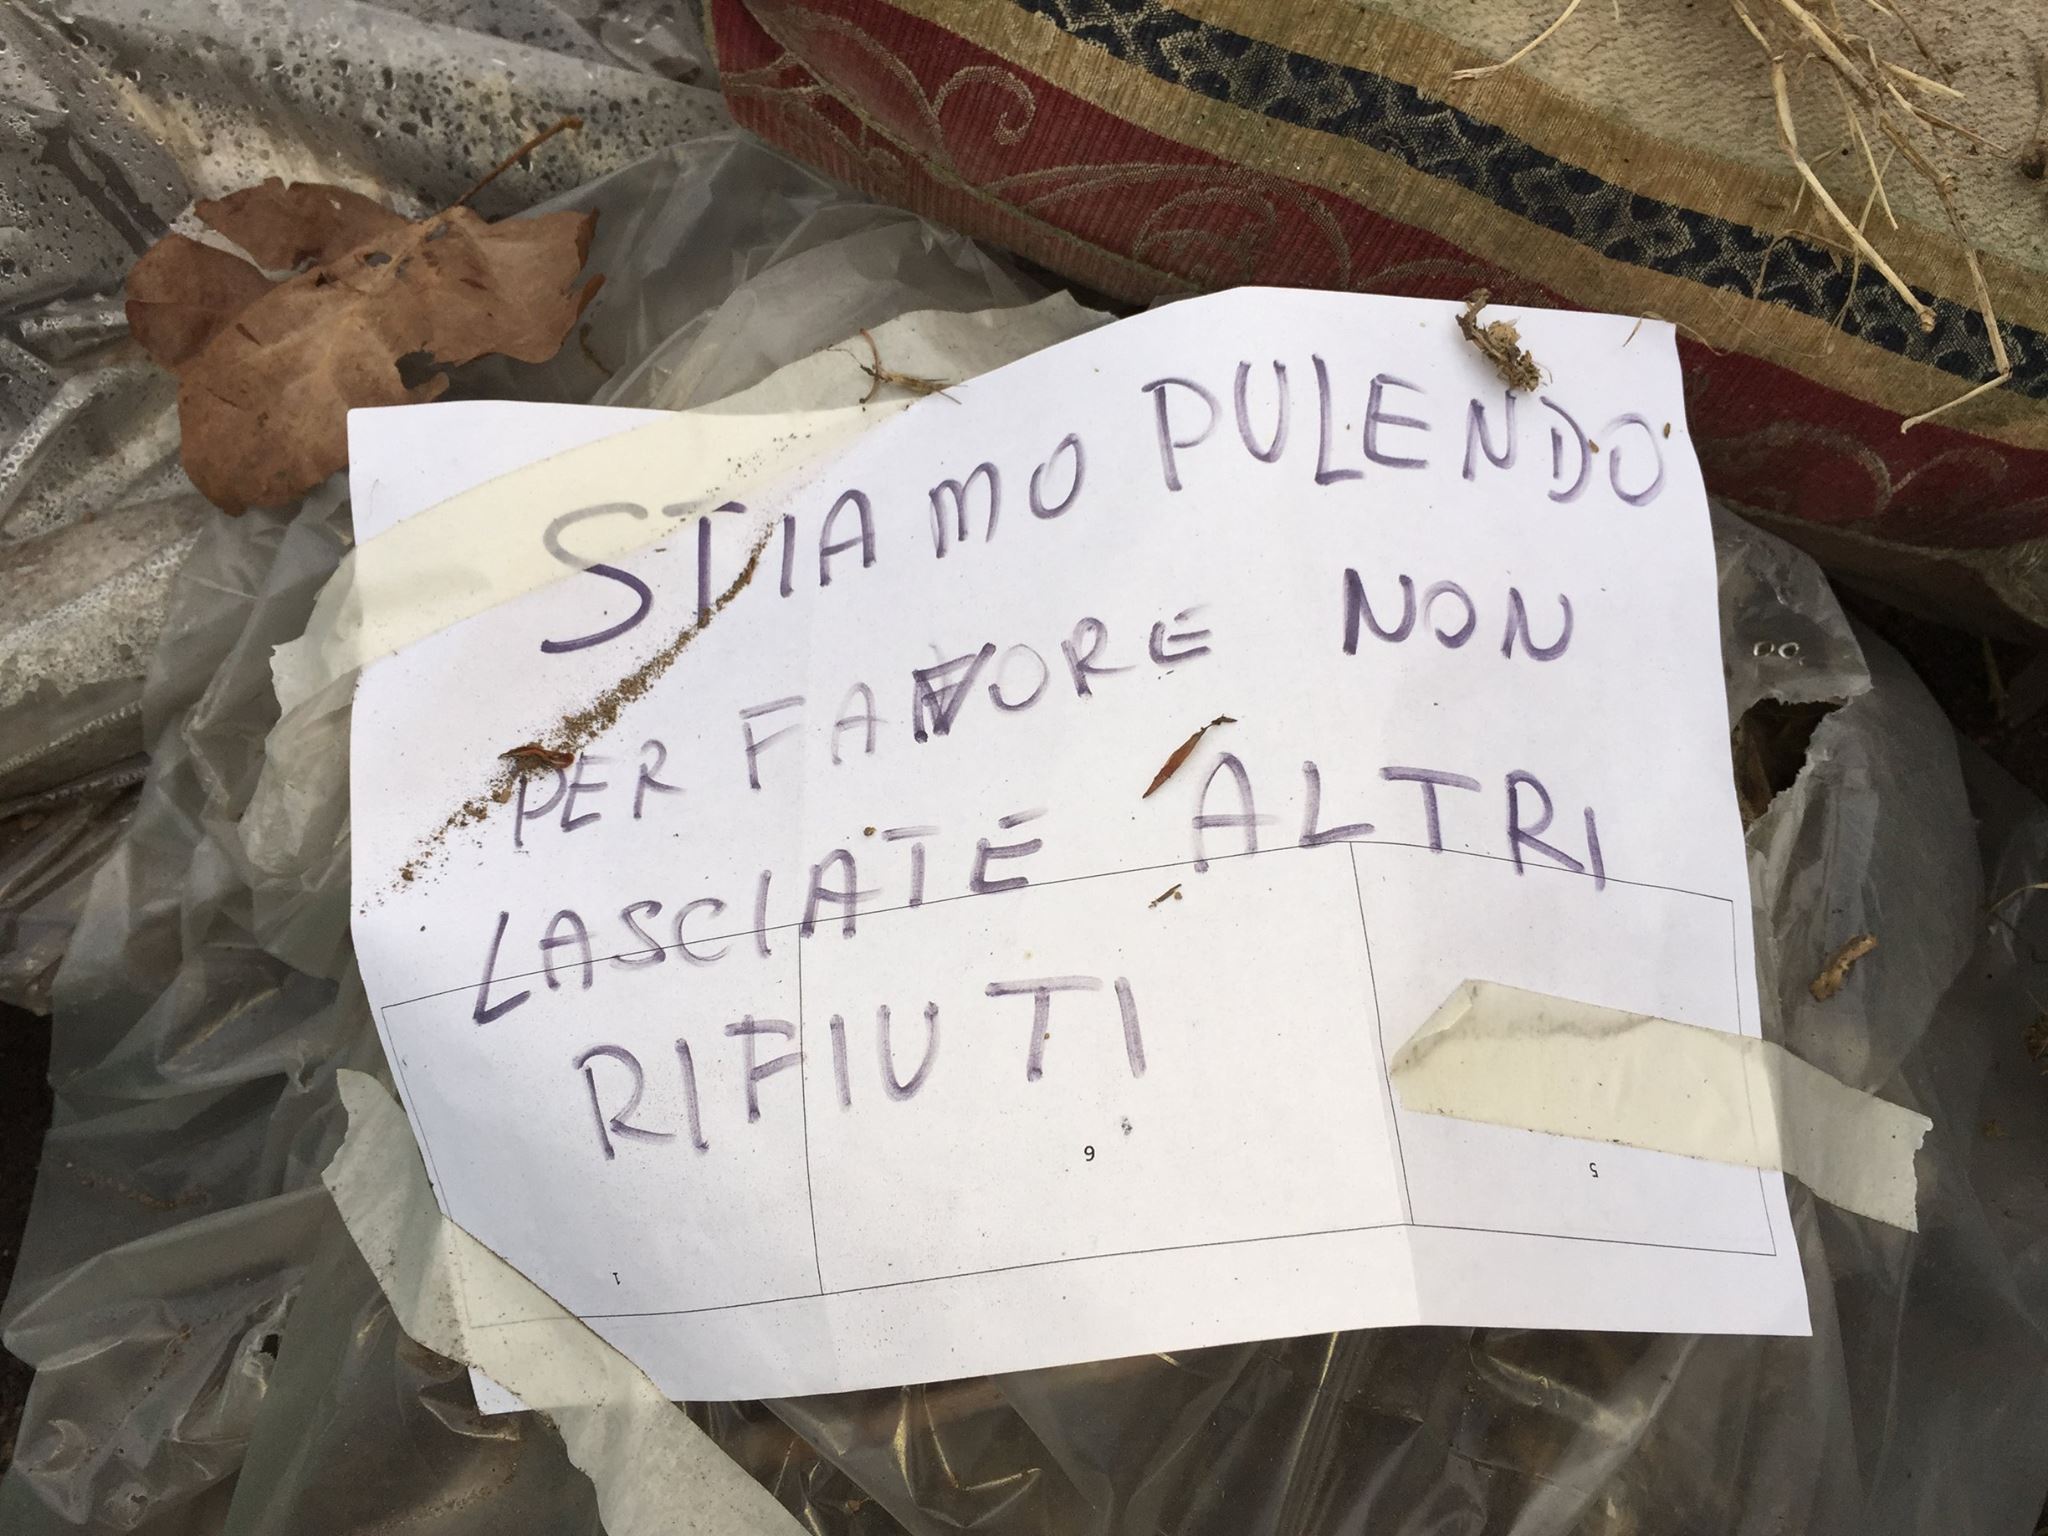 STIAMO PULENDO
PER FAVORE NON
LASCIATE ALTRI
RIFIUTI
1
6
5